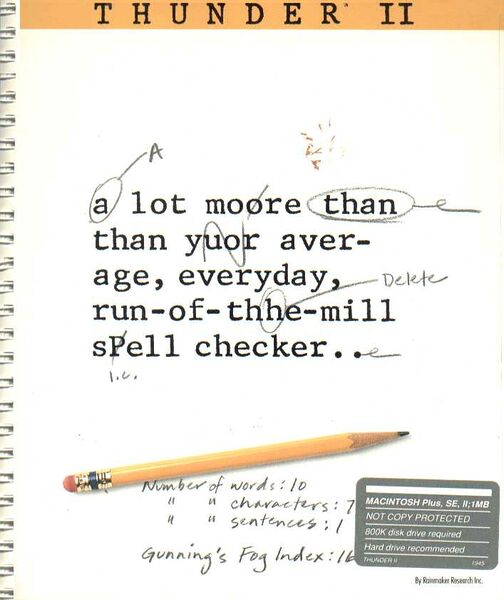 THUNDER II
A
a lot moore than
than yuor aver-
age, everyday,
Delete
run-of-thhe-mill
sPell checker..
l.c.
Number of words: 10
" " characters: 7
" " sentences: 1
Gunning's Fog Index: 16
MACINTOSH Plus, SE, II; 1MB
NOT COPY PROTECTED
800K disk drive required
Hard drive recommended
THUNDER II 1945
By Rainmaker Research Inc.